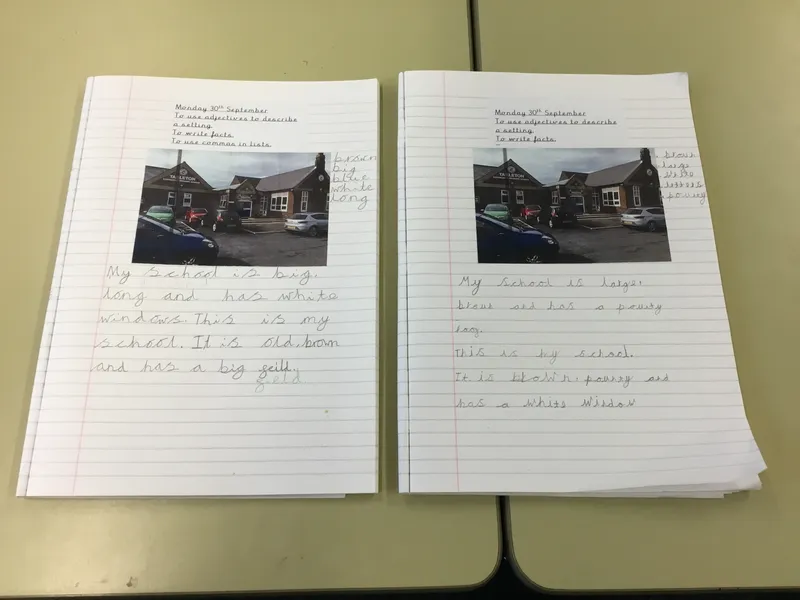 Monday 30th September
To use adjectives to describe
a setting.
To write facts.
To use commas in lists.
TARLETON
brown
big
blue
white
long
My school is big,
long and has white
windows. This is my
school. It is old, brown
and has a big geild.
geild
Monday 30th September
To use adjectives to describe
a setting.
To write facts.
TARLETON
large
My school is large,
and has a
This is my school.
It is brown, and
has a white window